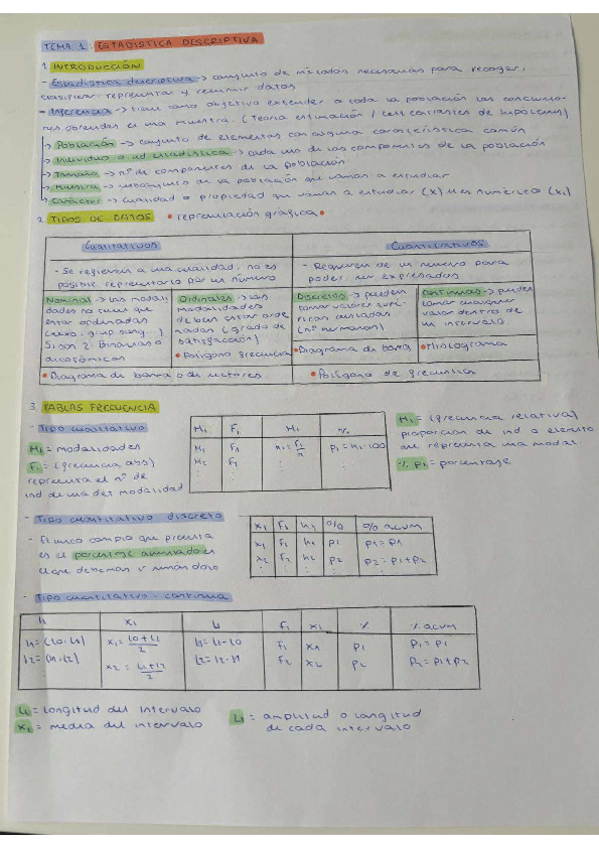 TEMA 1: ESTADISTICA DESCRIPTIVA
1. INTRODUCCIÓN
- Estadistica descriptiva → conjunto de métodos necesarios para recoger,
clasificar, representar y resumir datos
- Inferencia → tiene como objetivo extender a toda la población las conclusio-
nes obtenidas en una muestra. (Teoria estimación / contrastes de hipótesis)
→ Población → conjunto de elementos con alguna caracteristica común
→ Individuo o ud estadistica → cada uno de los componentes de la población
→ Tamaño → nº de componentes de la población
→ Muestra → subconjunto de la población que vamos a estudiar
→ Carácter → cualidad o propiedad que vamos a estudiar (X) si es numérico (xi)
2. TIPOS DE DATOS • representación gráfica •
Cualitativos Cuantitativos
- Se refieren a una cualidad, no es
posible representarlo por un número
- Requieren de un número para
poder ser expresados
Nominal → las modali-
dades no tienen que
estar ordenadas
(sexo, grup sang..)
Si son 2: Binarias o
dicotómicas
Ordinales → las
modalidades
deben estar orde
nadas (grado de
satisfacción)
• Poligono frecuencia
Discretos → pueden
tomar valores
aislados
(nº hermanos)
• Diagrama de barra
Continuas → puede
tomar cualquier
valor dentro de
un intervalo
• Histograma
• Diagrama de barra o de sectores
• Poligono de frecuencia
3. TABLAS FRECUENCIA
- Tipo cualitativo
Mi = modalidades
Fi = (frecuencia abs)
representa el nº de
ind de una det modalidad
Mi Fi Hi %
M1 F1 p1 = h1·100
M2 F2
Hi = (frecuencia relativa)
proporción de ind o elemento
que representa una modal.
% pi = porcentaje
- Tipo cuantitativo discreto
- El unico campo que presenta
es el porcentaje acumulado
xi Fi hi % % acum
x1 F1 h1 p1 P1 = p1
x2 F2 h2 p2 P2 = p1 + p2
- Tipo cuantitativo - continua
Ii xi Li Fi xi % % acum
I1 = (L0, L1) x1 = L0 + L1 / 2 L1 = L1 - L0 F1 x1 p1 P1 = p1
x2 = L1 + L2 / 2 F2 x2 p2 P2 = p1 + p2
Li = Longitud del Intervalo
xi = media del intervalo
Li = amplitud o longitud
de cada intervalo